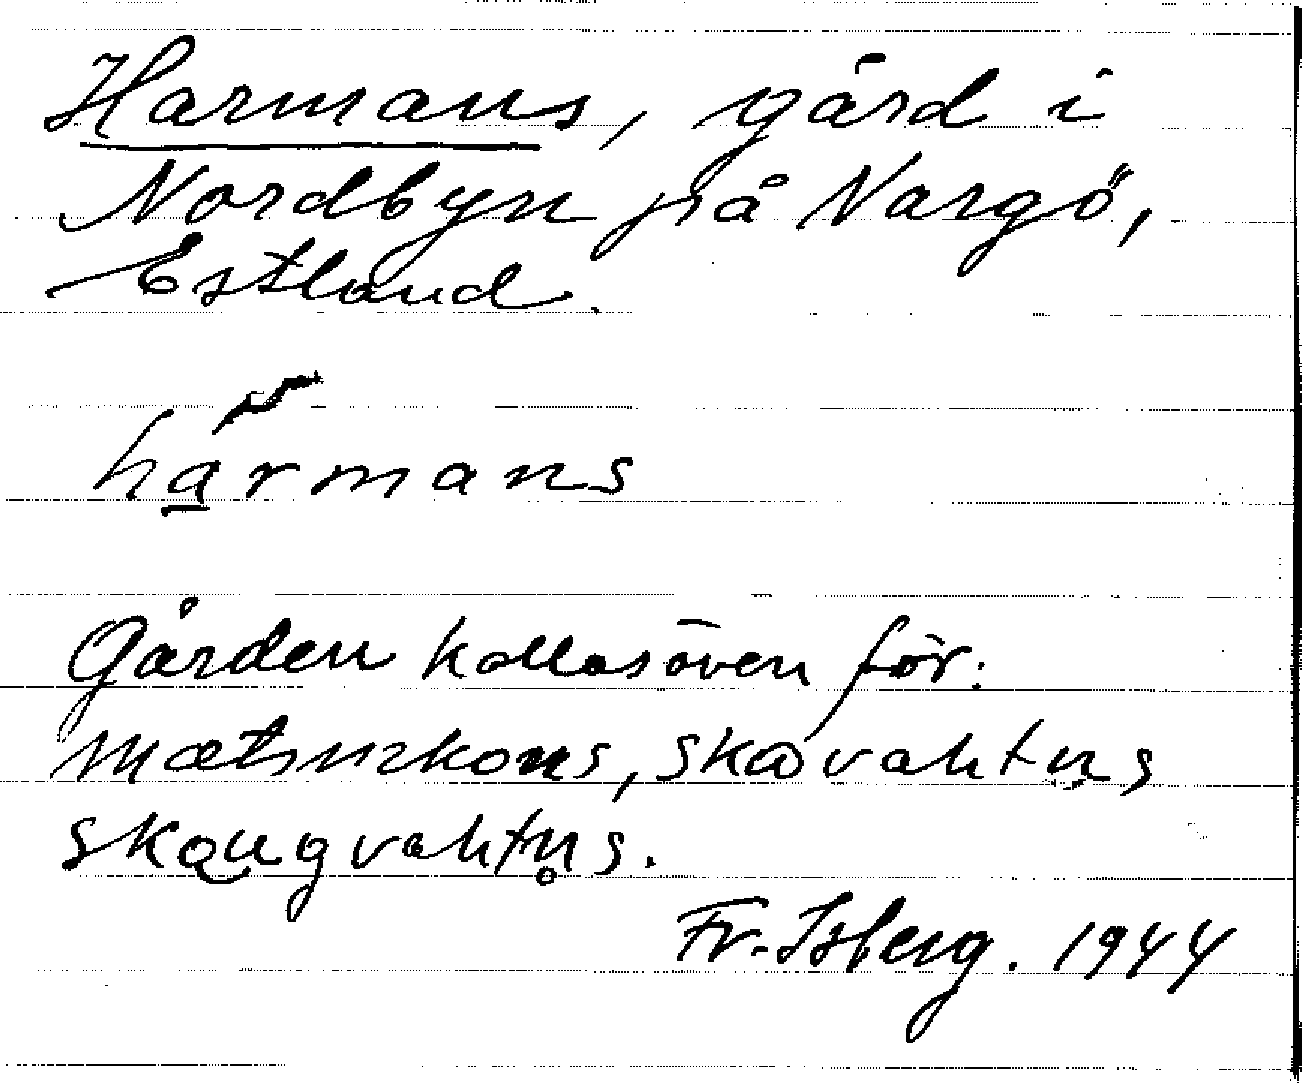 Harmans, gård i
Nordbyn på Nargö,
Estland.
hármans
Gården kallas även för:
mætsnikons, skåvahtns
skougvahtn̥s.
Fr. Isberg. 1944